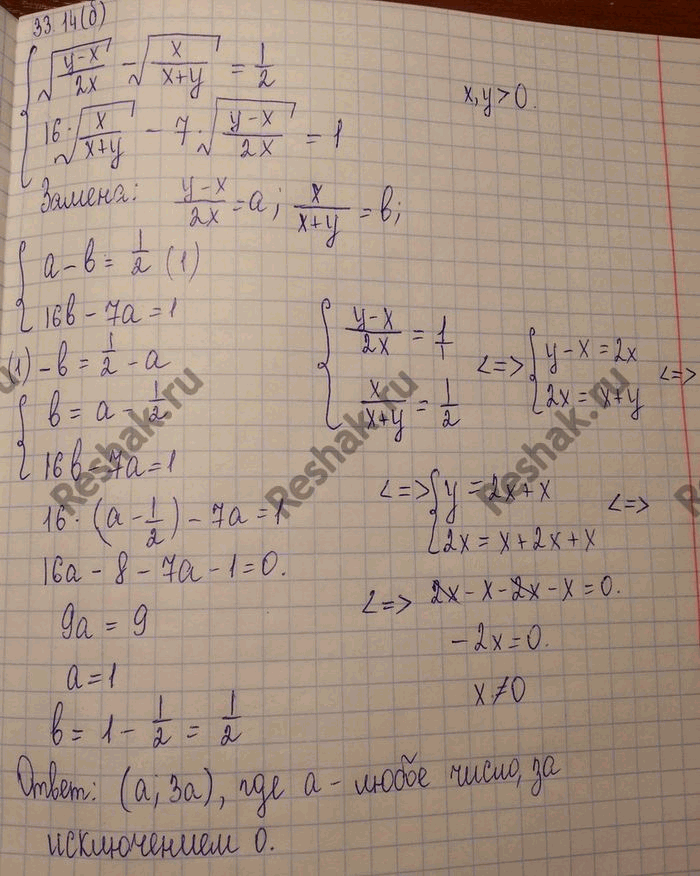 33.14(б)
{ √((y-x)/(2x)) - √(x/(x+y)) = 1/2
{ 16·√(x/(x+y)) - 7·√((y-x)/(2x)) = 1
x, y > 0.
Замена: (y-x)/(2x) = a; x/(x+y) = в;
{ a - в = 1/2 (1)
{ 16в - 7a = 1
(1) -в = 1/2 - a
{ в = a - 1/2
{ 16в - 7a = 1
16·(a - 1/2) - 7a = 1
16a - 8 - 7a - 1 = 0.
9a = 9
a = 1
в = 1 - 1/2 = 1/2
{ (y-x)/(2x) = 1/1
{ x/(x+y) = 1/2
<=> { y - x = 2x
{ 2x = x + y <=>
<=> { y = 2x + x
{ 2x = x + 2x + x <=>
<=> 2x - x - 2x - x = 0.
-2x = 0.
x ≠ 0
Ответ: (a; 3a), где a - любое число, за
исключением 0.
Reshak.ru
Reshak.ru
Reshak.ru